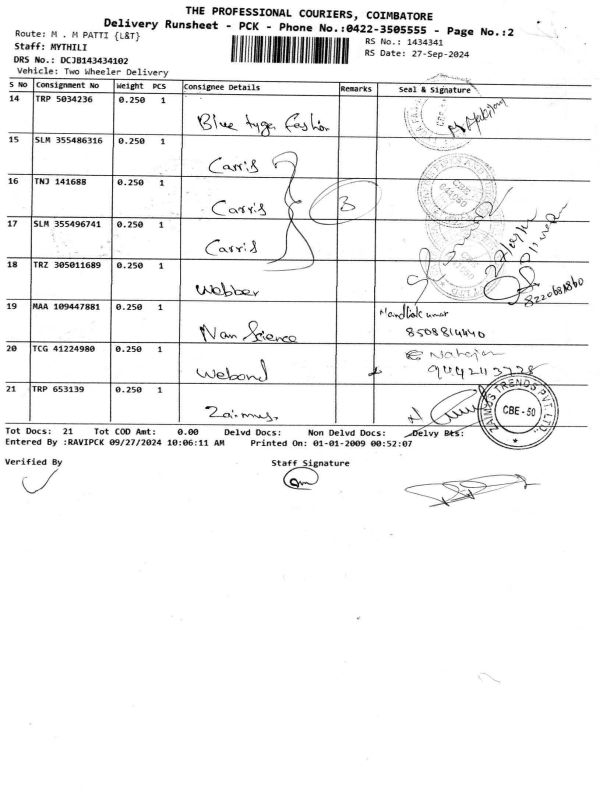 THE PROFESSIONAL COURIERS, COIMBATORE
Delivery Runsheet - PCK - Phone No.:0422-3505555 - Page No.:2
Route: M . M PATTI {L&T}
RS No.: 1434341
Staff: MYTHILI
RS Date: 27-Sep-2024
DRS No.: DCJB143434102
Vehicle: Two Wheeler Delivery
S No Consignment No Weight PCS Consignee Details Remarks Seal & Signature
14 TRP 5034236 0.250 1 Blue tyger fashion
15 SLM 355486316 0.250 1 Carris
16 TNJ 141688 0.250 1 Carris 3
17 SLM 355496741 0.250 1 Carris
18 TRZ 305011689 0.250 1 Webber 8220681860
19 MAA 109447881 0.250 1 Nan Science Nandhakumar
8508814440
20 TCG 41224980 0.250 1 Webond
21 TRP 653139 0.250 1 Zaimus. ZAIMUS TRENDS PVT. LTD. CBE - 50
Tot Docs: 21 Tot COD Amt: 0.00 Delvd Docs: Non Delvd Docs: Delvy Bts:
Entered By :RAVIPCK 09/27/2024 10:06:11 AM Printed On: 01-01-2009 00:52:07
Verified By Staff Signature